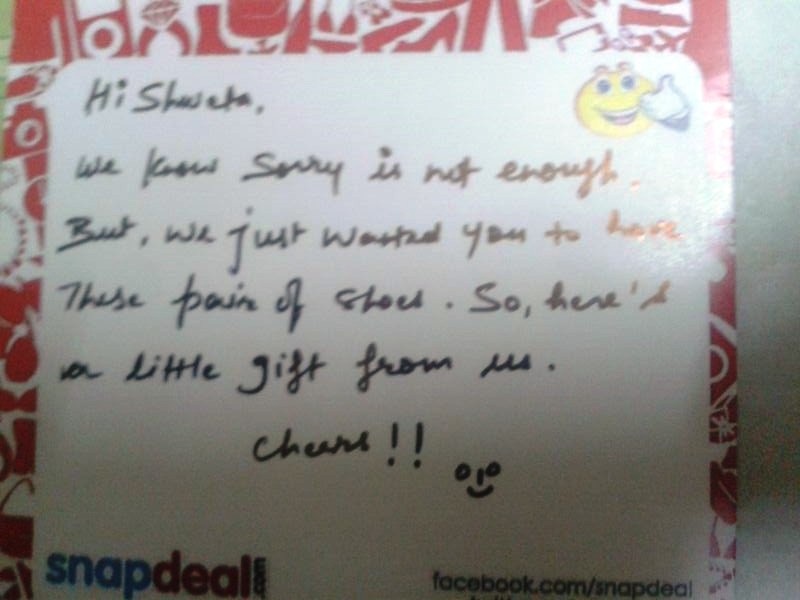 Hi Shweta,
We know Sorry is not enough.
But, we just wanted you to have
These pair of shoes. So, here's
a little gift from us.
Cheers!!
snapdeal.com
facebook.com/snapdeal